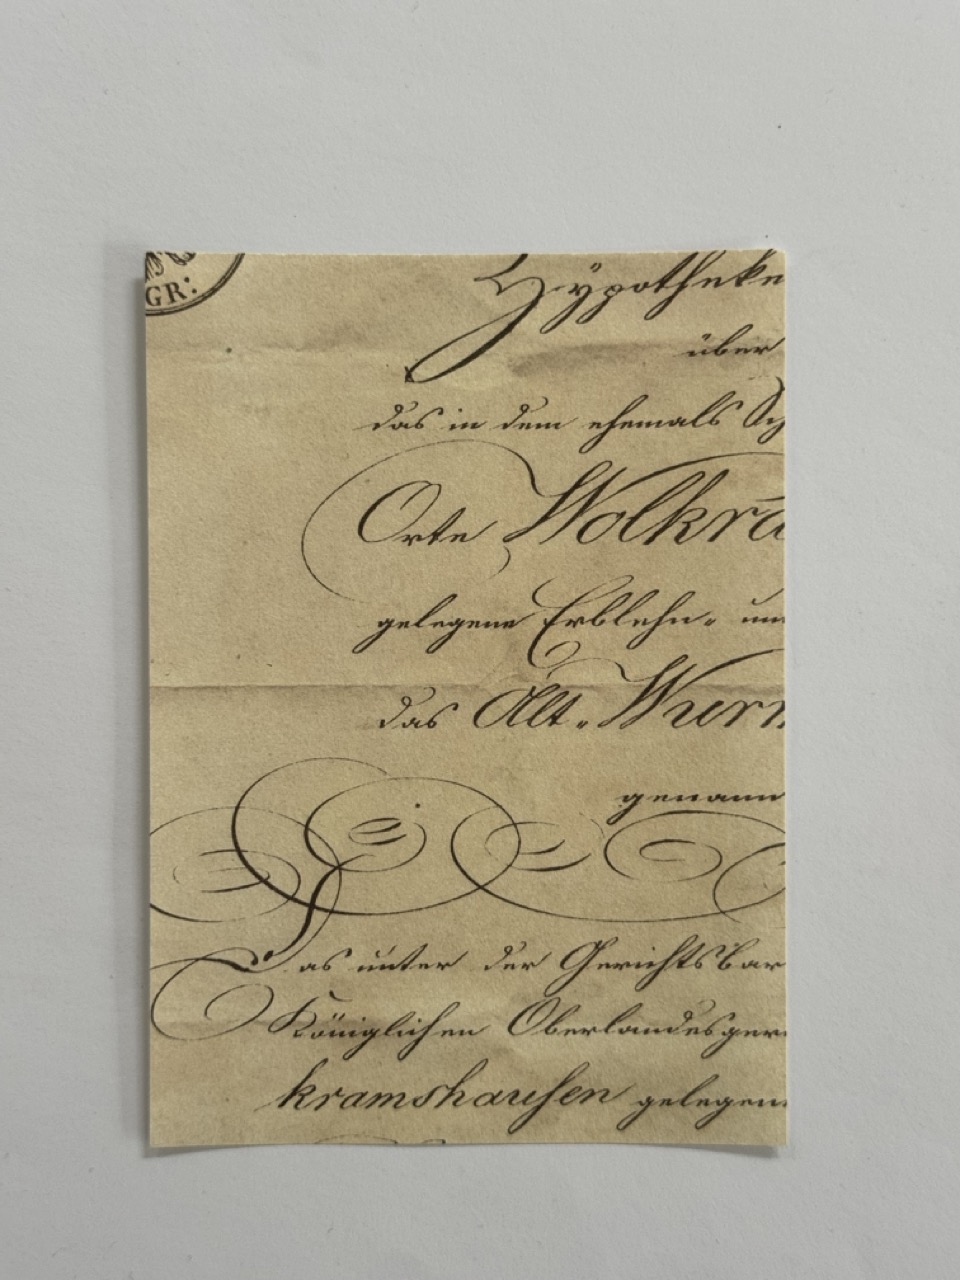 GR:
Hÿpotheke
über
das in dem ehemals Sch
Orte Wolkra
gelegene Erblehn- un
das Alt-Wurm
genann
Das unter der Gerichtsbar
Königlichen Oberlandesger
kramshausen gelegen